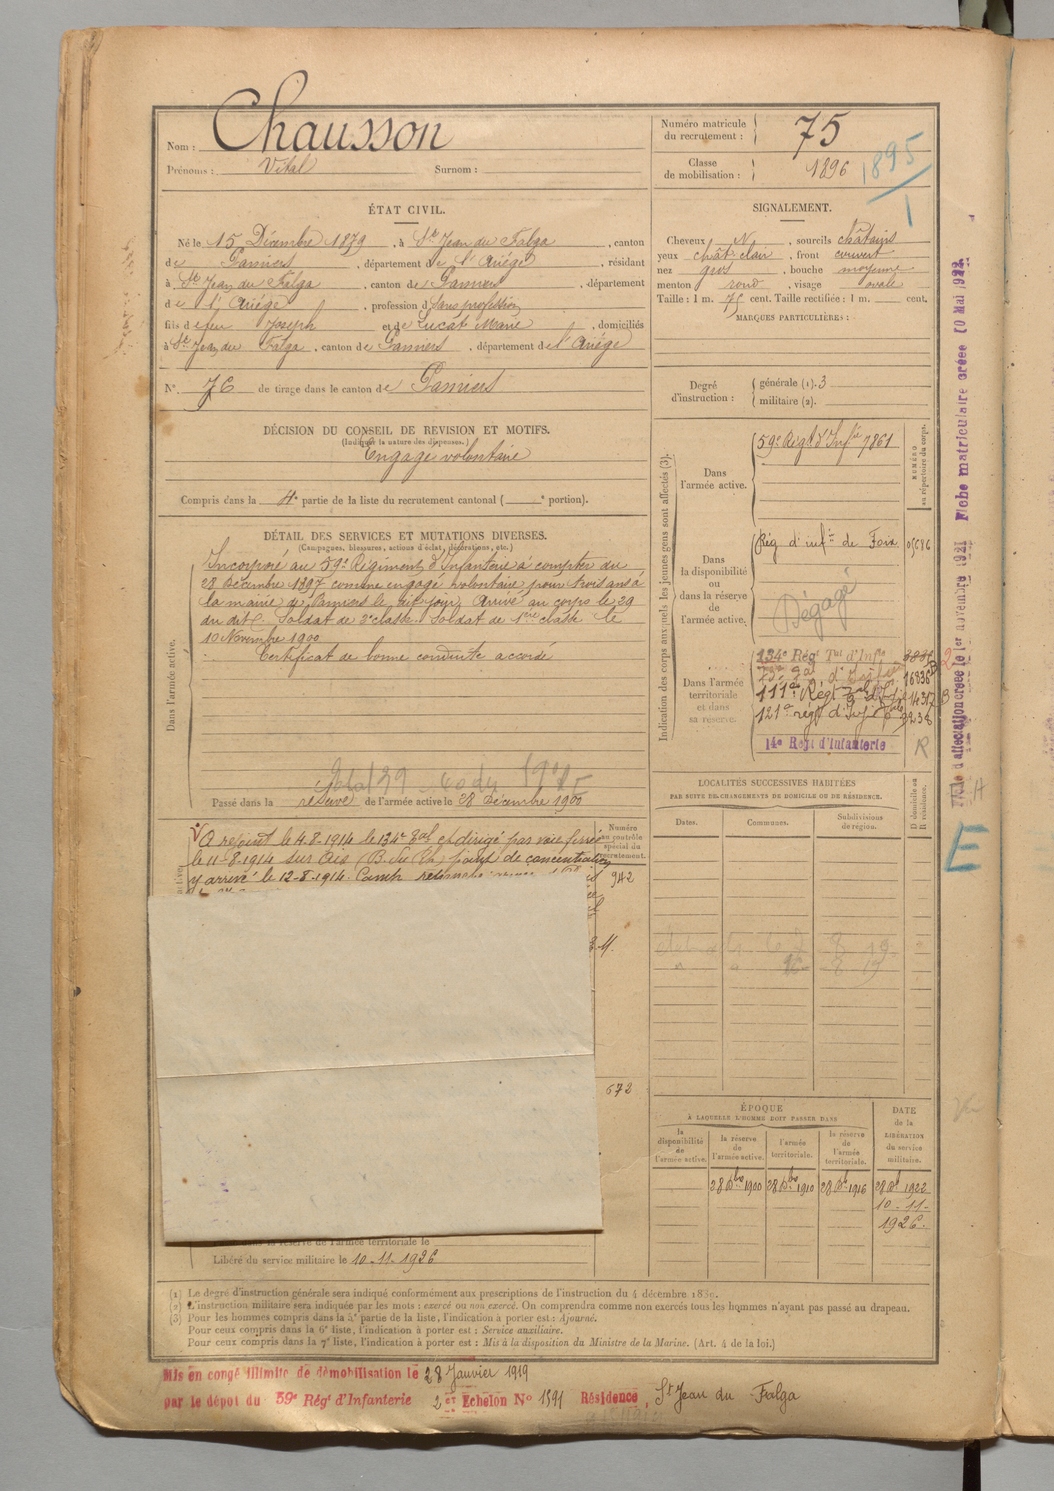 Nom : Chausson
Prénoms : Vital Surnom :
Numéro matricule du recrutement : 75
Classe de mobilisation : 1896
1895
1
ÉTAT CIVIL.
Né le 15 Décembre 1879, à St Jean du Falga, canton
de Pamiers, département de l'Ariége, résidant
à St Jean du Falga, canton de Pamiers, département
de l'Ariége, profession d Sans profession
fils de feu Joseph et de Lucat Marie, domiciliés
à St Jean du Falga, canton de Pamiers, département de l'Ariége
N° 76 de tirage dans le canton de Pamiers
SIGNALEMENT.
Cheveux N, sourcils châtains
yeux chât. clair, front couvert
nez gros, bouche moyenne
menton rond, visage ovale
Taille : 1 m. 76 cent. Taille rectifiée : 1 m. cent.
MARQUES PARTICULIÈRES :
Degré d'instruction : générale (1). 3
militaire (2).
DÉCISION DU CONSEIL DE REVISION ET MOTIFS.
(Indiquer la nature des dispenses.)
Engagé volontaire
Compris dans la 4e partie de la liste du recrutement cantonal ( e portion).
DÉTAIL DES SERVICES ET MUTATIONS DIVERSES.
(Campagnes, blessures, actions d'éclat, décorations, etc.)
Dans l'armée active.
Incorporé au 59e Régiment d'Infanterie à compter du
28 Décembre 1897 comme engagé volontaire pour trois ans à
la mairie de Pamiers le dit jour. Arrivé au corps le 29
du dit. Soldat de 2e classe. Soldat de 1ère classe le
10 Novembre 1900
Certificat de bonne conduite accordé
Passé dans la réserve de l'armée active le 28 Décembre 1900
A rejoint le 4.8.1914 le 134e Bal et dirigé par voie ferrée
le 11-8-1914 sur Ais (B. du Rh) point de concentration
y arrivé le 12-8-1914. Camp
Numéro au contrôle spécial du recrutement.
942
672
Indication des corps auxquels les jeunes gens sont affectés (3).
NUMÉRO au répertoire du corps.
Dans l'armée active.
59e Régt d'Infie 7861
Dans la disponibilité ou dans la réserve de l'armée active.
Rég d'infie de Foix 05686
Dégagé
Dans l'armée territoriale et dans sa réserve.
134e Régt Tal d'Infie
16836
111e Régt
121e régt d'Inf 3238
14e Régt d'Infanterie
R
LOCALITÉS SUCCESSIVES HABITÉES
PAR SUITE DE CHANGEMENTS DE DOMICILE OU DE RÉSIDENCE.
Dates. Communes. Subdivisions de région. D domicile ou R résidence.
ÉPOQUE
À LAQUELLE L'HOMME DOIT PASSER DANS
la disponibilité de l'armée active. la réserve de l'armée active. l'armée territoriale. la réserve de l'armée territoriale.
DATE de la LIBÉRATION du service militaire.
28 Xbre 1900 28 Xbre 1910 28 Xbre 1916 28 Xbre 1922
10-11-
1926.
dans la réserve de l'armée territoriale le
Libéré du service militaire le 10-11-1926
(1) Le degré d'instruction générale sera indiqué conformément aux prescriptions de l'instruction du 4 décembre 1889.
(2) L'instruction militaire sera indiquée par les mots : exercé ou non exercé. On comprendra comme non exercés tous les hommes n'ayant pas passé au drapeau.
(3) Pour les hommes compris dans la 5e partie de la liste, l'indication à porter est : Ajourné.
Pour ceux compris dans la 6e liste, l'indication à porter est : Service auxiliaire.
Pour ceux compris dans la 7e liste, l'indication à porter est : Mis à la disposition du Ministre de la Marine. (Art. 4 de la loi.)
Mis en congé illimité de démobilisation le 28 Janvier 1919
par le dépôt du 59e Régt d'Infanterie 2e Echelon N° 1591 Résidence, St Jean du Falga
Fiche d'affectation créée le 1er novembre 1921 Fiche matriculaire créée 10 Mai 1922
E